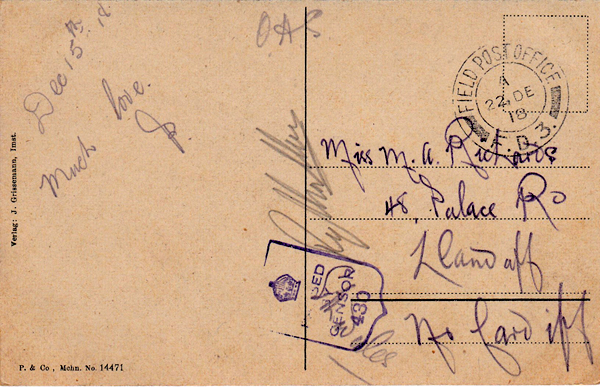 Dec 15th 18.
Much love.
J.
Verlag: J. Grissemann, Imst.
P. & Co, Mchn. No. 14471
OAS
FIELD POST OFFICE
A
22 DE
18
F.D.3.
Miss M. A. Richards
48, Palace Rd
Llandaff
Nr Cardiff
Wales
CENSOR
430